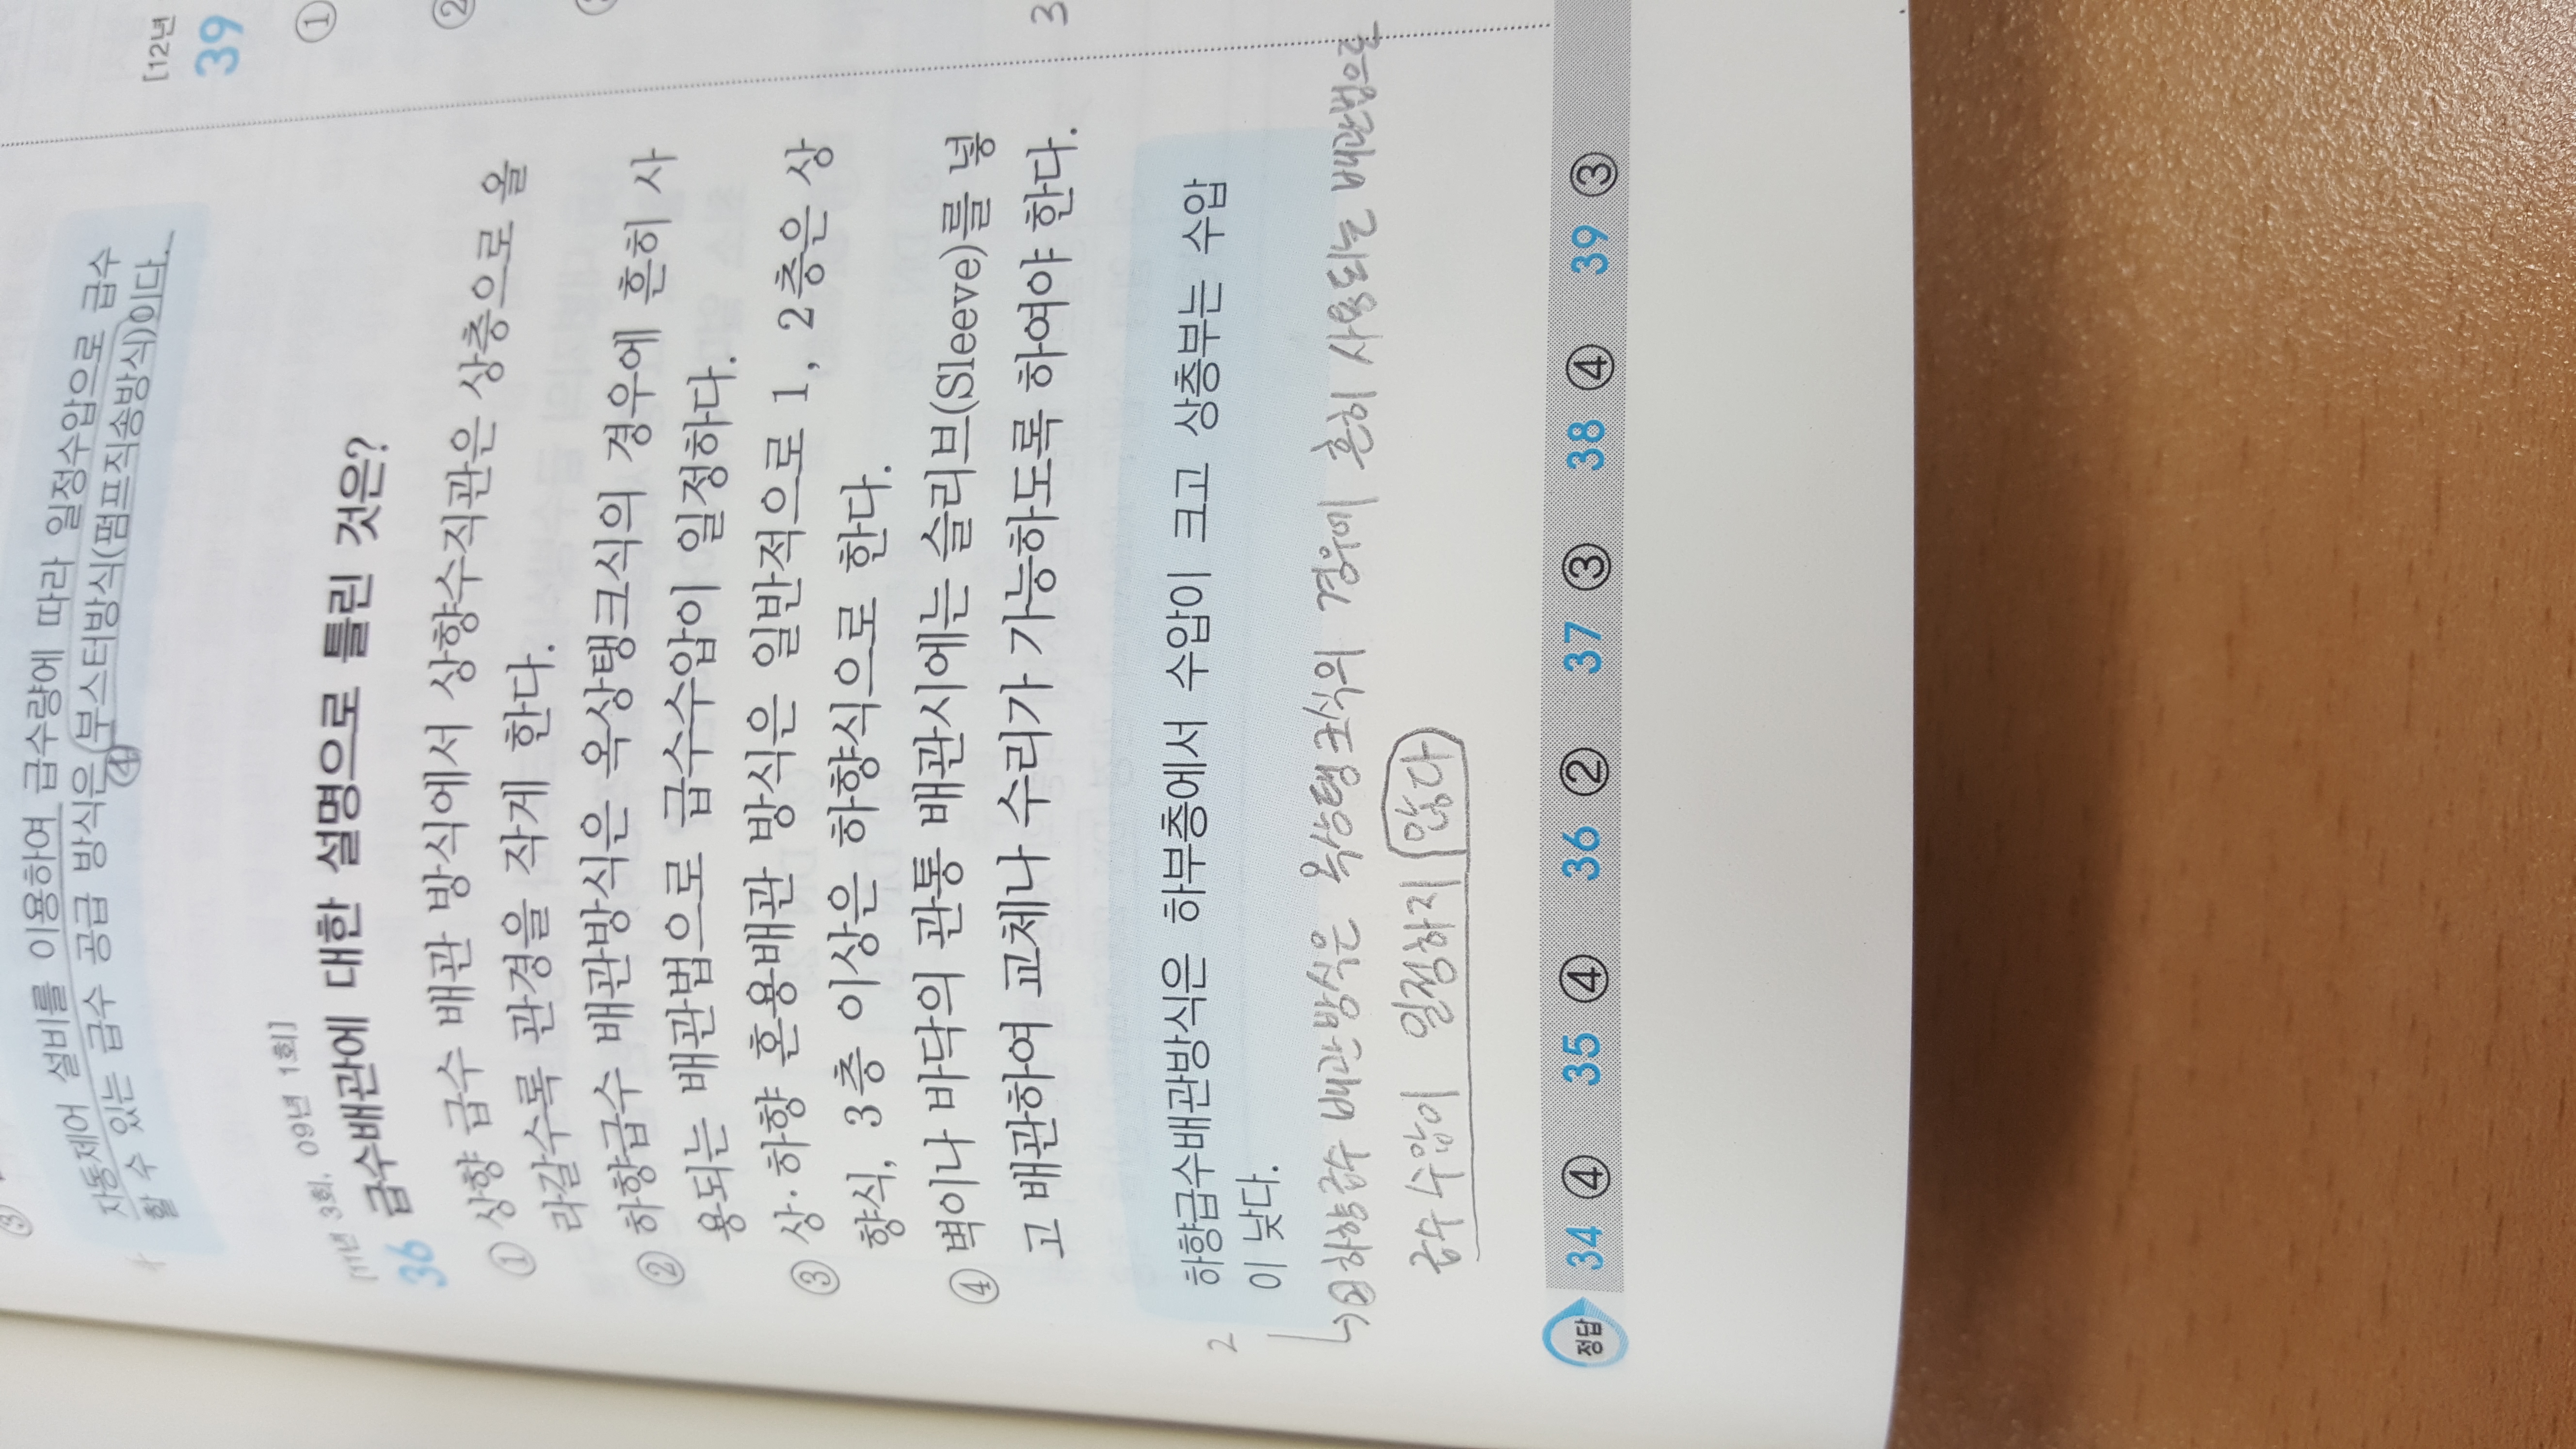 자동제어 설비를 이용하여 급수량에 따라 일정수압으로 급수
할 수 있는 급수 공급 방식은 부스터방식(펌프직송방식)이다.
④
[11년 3회, 09년 1회]
36 급수배관에 대한 설명으로 틀린 것은?
① 상향 급수 배관 방식에서 상향수직관은 상층으로 올
라갈수록 관경을 작게 한다.
② 하향급수 배관방식은 옥상탱크식의 경우에 흔히 사
용되는 배관법으로 급수수압이 일정하다.
③ 상·하향 혼용배관 방식은 일반적으로 1, 2층은 상
향식, 3층 이상은 하향식으로 한다.
④ 벽이나 바닥의 관통 배관시에는 슬리브(Sleeve)를 넣
고 배관하여 교체나 수리가 가능하도록 하여야 한다.
2
하향급수배관방식은 하부층에서 수압이 크고 상층부는 수압
이 낮다.
↳ ② 하향급수 배관방식은 옥상탱크식의 경우에 흔히 사용되는 배관법으로
급수수압이 일정하지 않다
[12년
39
①
②
3
정답 34 ④ 35 ④ 36 ② 37 ③ 38 ④ 39 ③